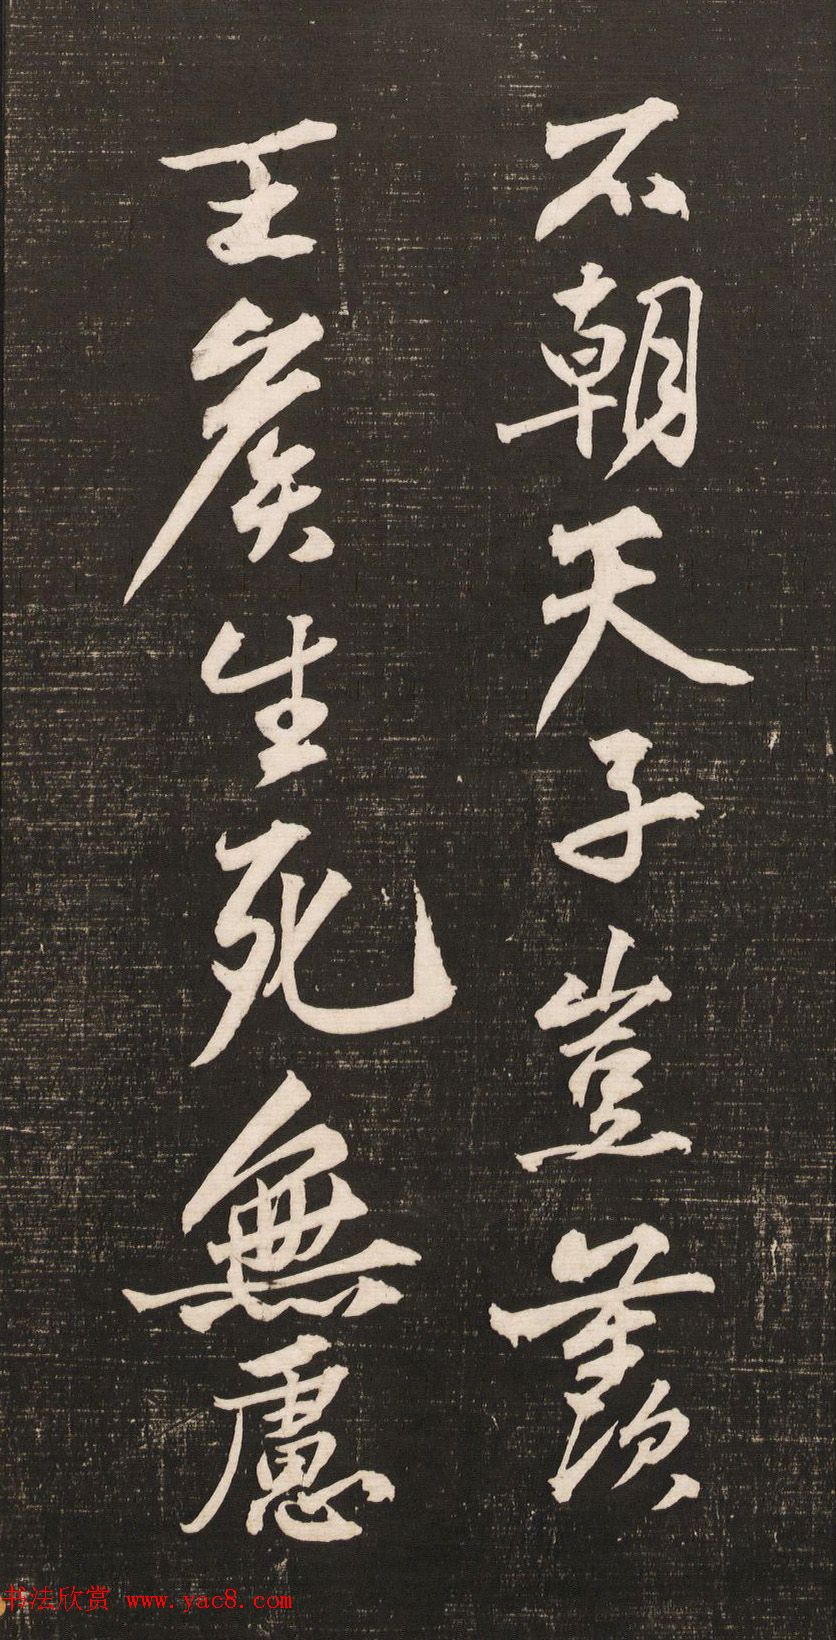 不朝天子豈羨
王侯生死無慮
书法欣赏 www.yac8.com